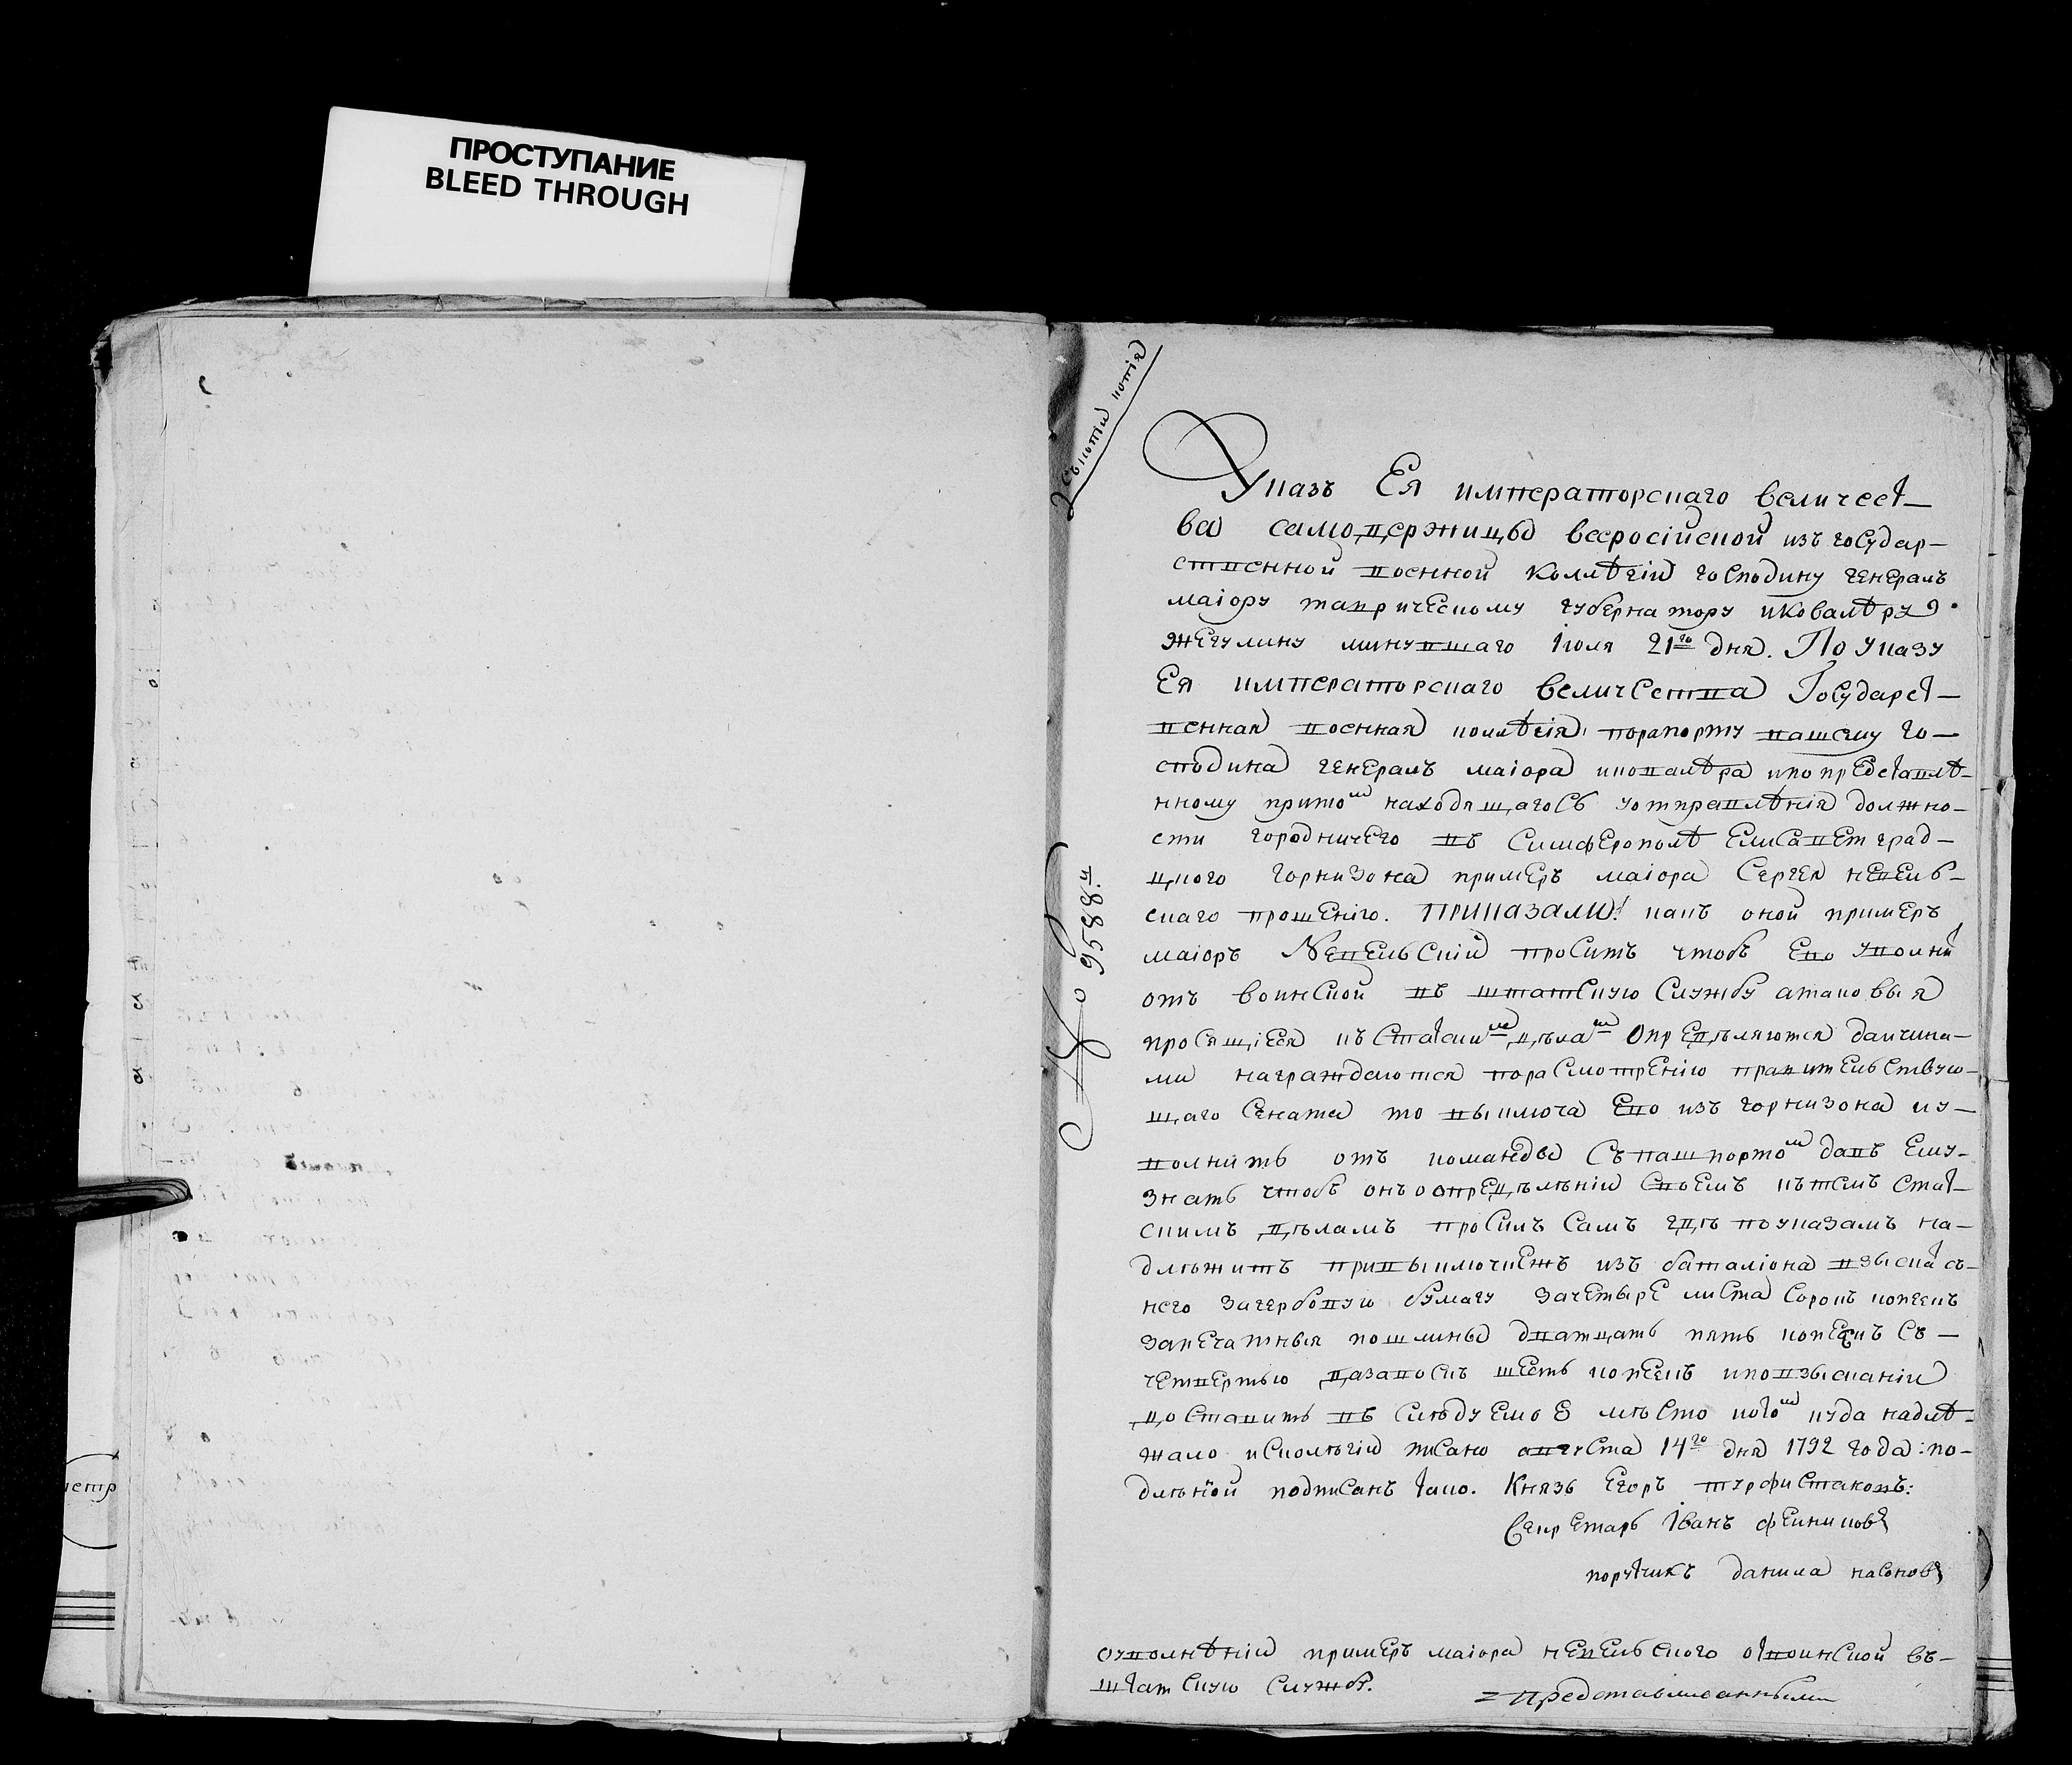 ПРОСТУПАНИЕ
BLEED THROUGH
Съ копіи копія
Указъ Ея императорскаго величест-
ва самодержицы всеросійской изъ государ-
ственной военной коллѣгіи господину генералъ
маіору таврическому губернатору и ковалѣру
жегулину минувшаго Іюля 21го дня. По указу
Ея императорскаго величества Государст-
венная военная коллѣгія порапорту вашему го-
сподина генералъ маіора иковалѣра ипопредставлѣ-
нному притом находящагосъ уотправлѣнія должно-
сти городничего въ Симферополѣ Елисаветград-
цкого горнизона примеръ маіора Сергея невель-
скаго прошенію. приказали! какъ оной примеръ
маіоръ Невельскій проситъ чтобъ Ево уволнит
отъ воинской въ штатскую службу атаковыя
просящіеся къ статским дѣлам опредѣляются дачина-
ми награждаются порасмотренію правительствую-
щаго Сената то выключа Ево изъ горнизона и у-
волнить отъ команды съ пашпортом давъ Ему
знать чтобъ онъ о опредѣлѣніи своемъ къ темъ стат-
скимъ дѣламъ просилъ самъ гдѣ по указамъ на-
длѣжитъ при выключкежъ изъ баталіона взыскат съ
него за гербовую бумагу за четыре листа сорокъ копеекъ
запечатныя пошлины дватцать пять копеекъ съ-
четвертью да за воскъ шесть копеекъ ипо взысканіи
доставить въ слѣдуемое мѣсто кого куда надлѣ-
жало и с коллѣгіи писано августа 14го дня 1792 года: по-
длѣнной подписанъ тако. Князь Егоръ
Секретарь Іванъ
порутчикъ данила насонов
№ 9588.й
о уволнѣніи примеръ маіора невельского от воинской въ-
штатскую службу.
представлеанными